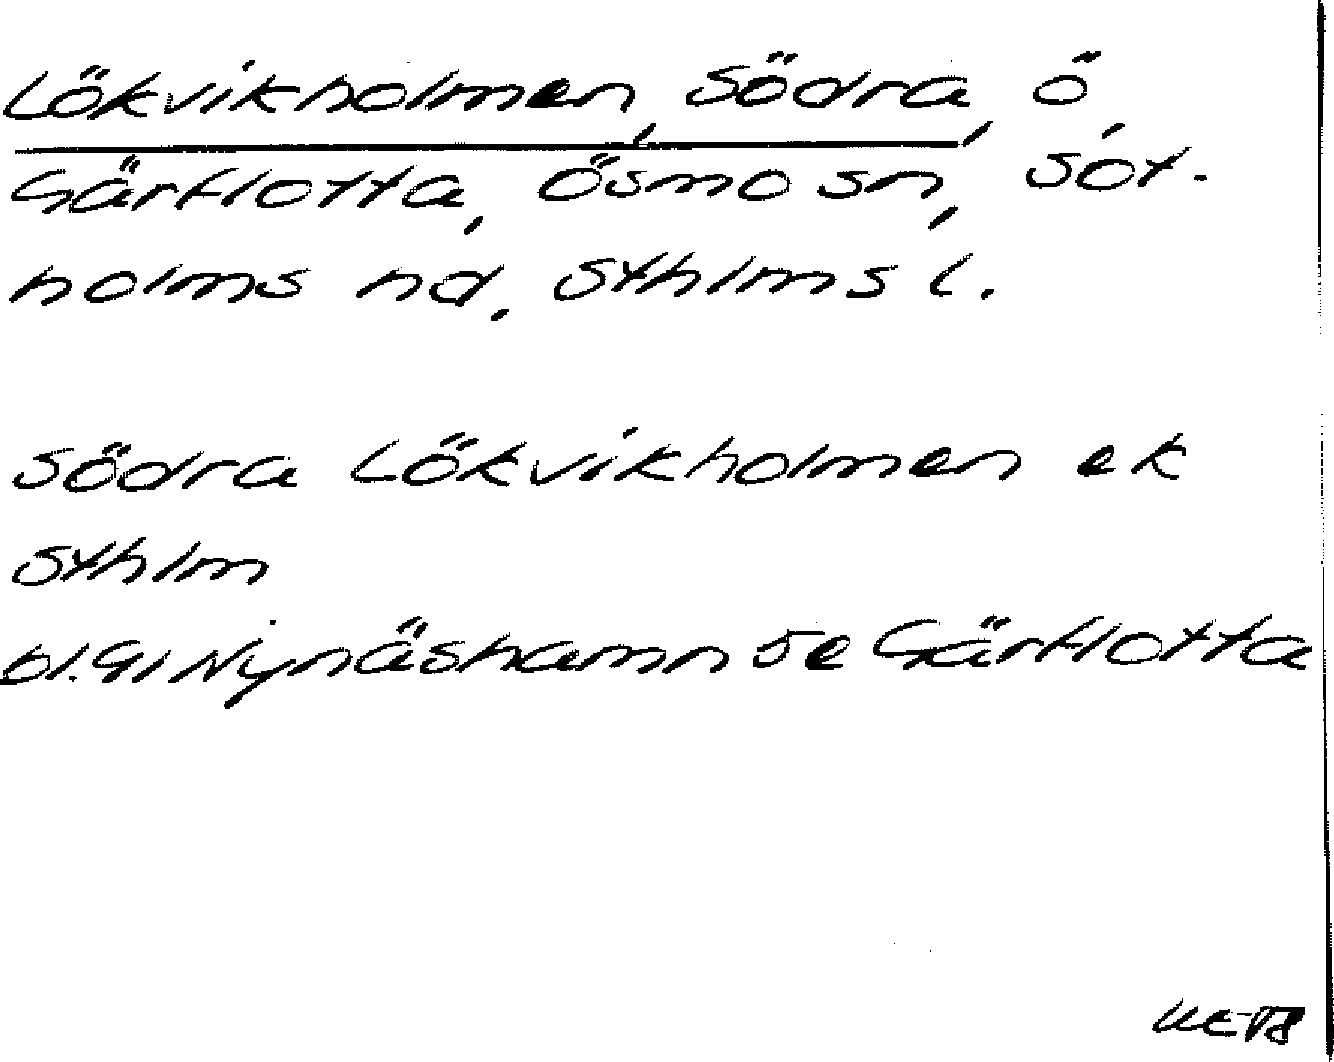 Lökvikholmen, Södra, ö,
Gärflotta, Ösmo sn, Sot-
holms hd. Sthlms l.
Södra Lökvikholmen ek
Sthlm
bl. 91 Nynäshamn 5e Gärflotta